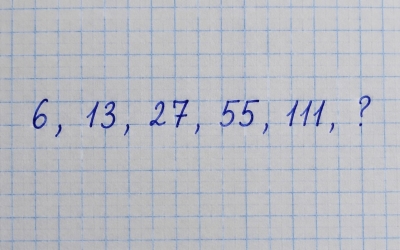 6, 13, 27, 55, 111, ?